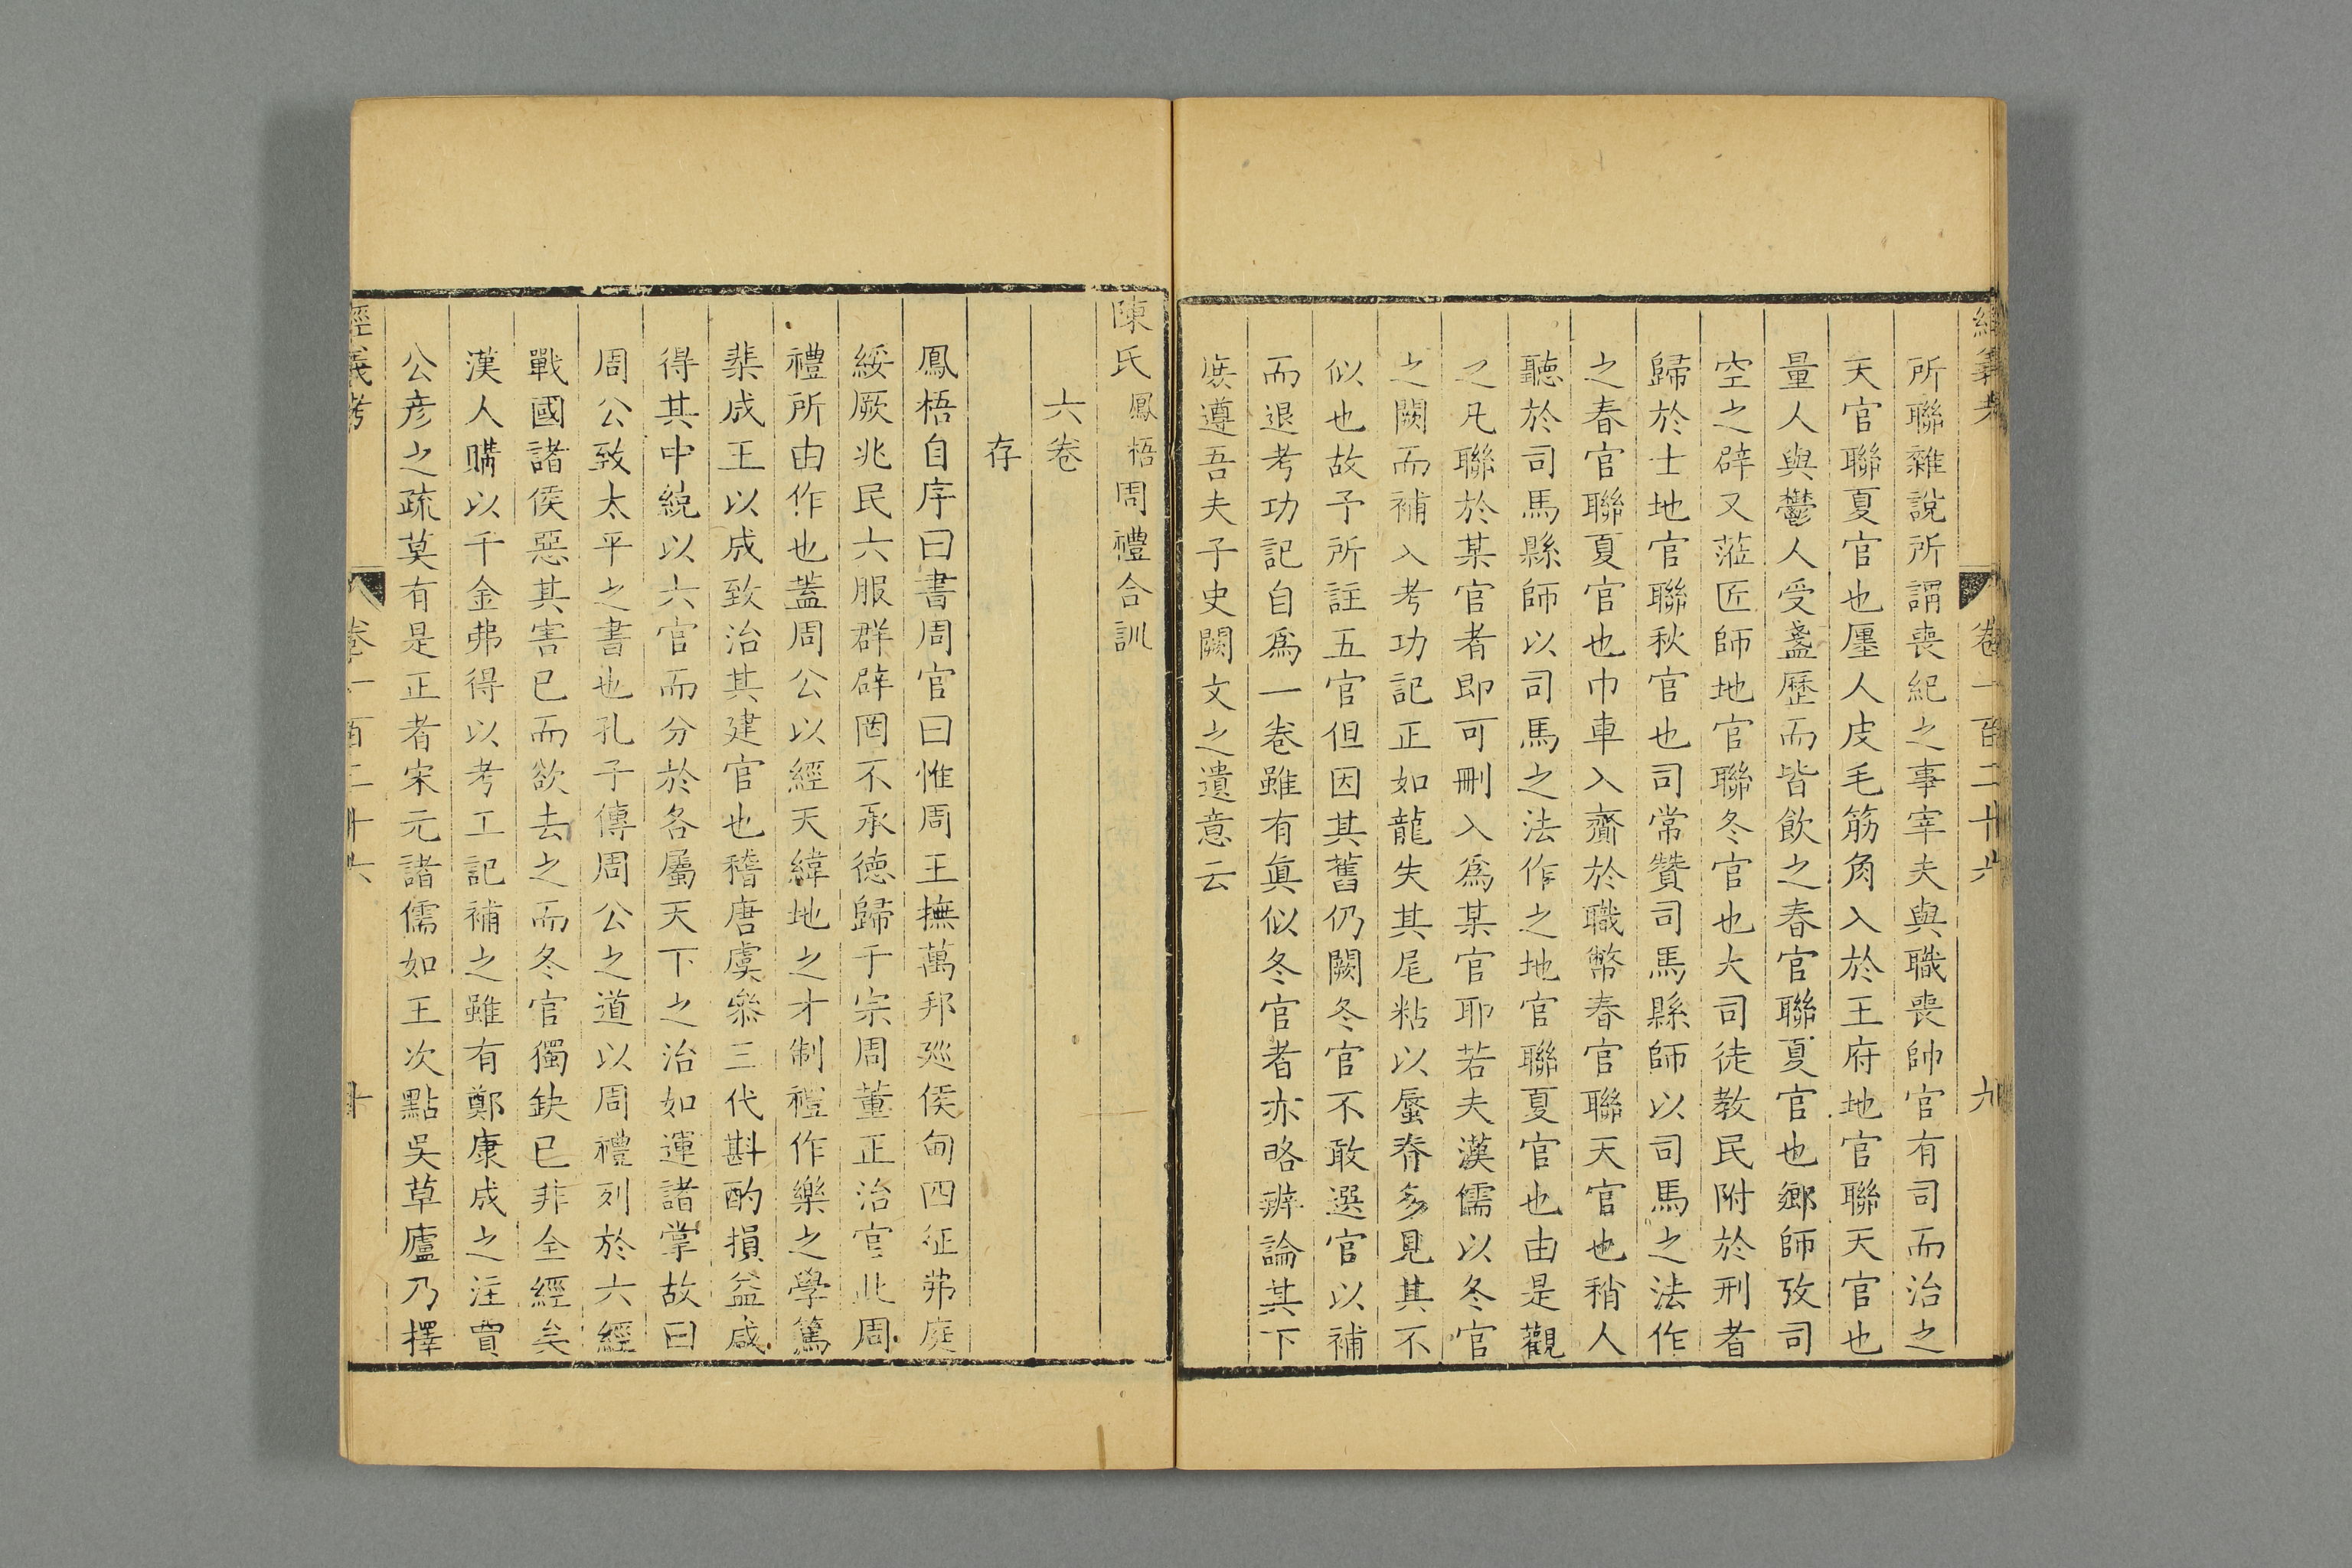 經義考 卷一百二十六 九
所聯雜說所謂喪紀之事宰夫與職喪帥官有司而治之
天官聯夏官也廛人皮毛筋角入於王府地官聯天官也
量人與鬱人受盞歷而皆飲之春官聯夏官也鄉師攷司
空之辟又蒞匠師地官聯冬官也大司徒教民附於刑者
歸於士地官聯秋官也司常贊司馬縣師以司馬之法作
之春官聯夏官也巾車入齎於職幣春官聯天官也稍人
聽於司馬縣師以司馬之法作之地官聯夏官也由是觀
之凡聯於某官者即可刪入爲某官耶若夫漢儒以冬官
之闕而補入考功記正如龍失其尾粘以蜃脊多見其不
似也故予所註五官但因其舊仍闕冬官不敢選官以補
而退考功記自爲一卷雖有眞似冬官者亦略辨論其下
庶遵吾夫子史闕文之遺意云
陳氏鳳梧周禮合訓
六卷
存
鳳梧自序曰書周官曰惟周王撫萬邦廵侯甸四征弗庭
綏厥兆民六服群辟罔不承德歸于宗周董正治官此周
禮所由作也蓋周公以經天緯地之才制禮作樂之學篤
棐成王以成致治其建官也稽唐虞叅三代斟酌損益咸
得其中統以六官而分於各屬天下之治如運諸掌故曰
周公致太平之書也孔子傳周公之道以周禮列於六經
戰國諸侯惡其害已而欲去之而冬官獨缺已非全經矣
漢人購以千金弗得以考工記補之雖有鄭康成之注賈
公彦之疏莫有是正者宋元諸儒如王次點吳草廬乃擇
經義考 卷一百二十六 十